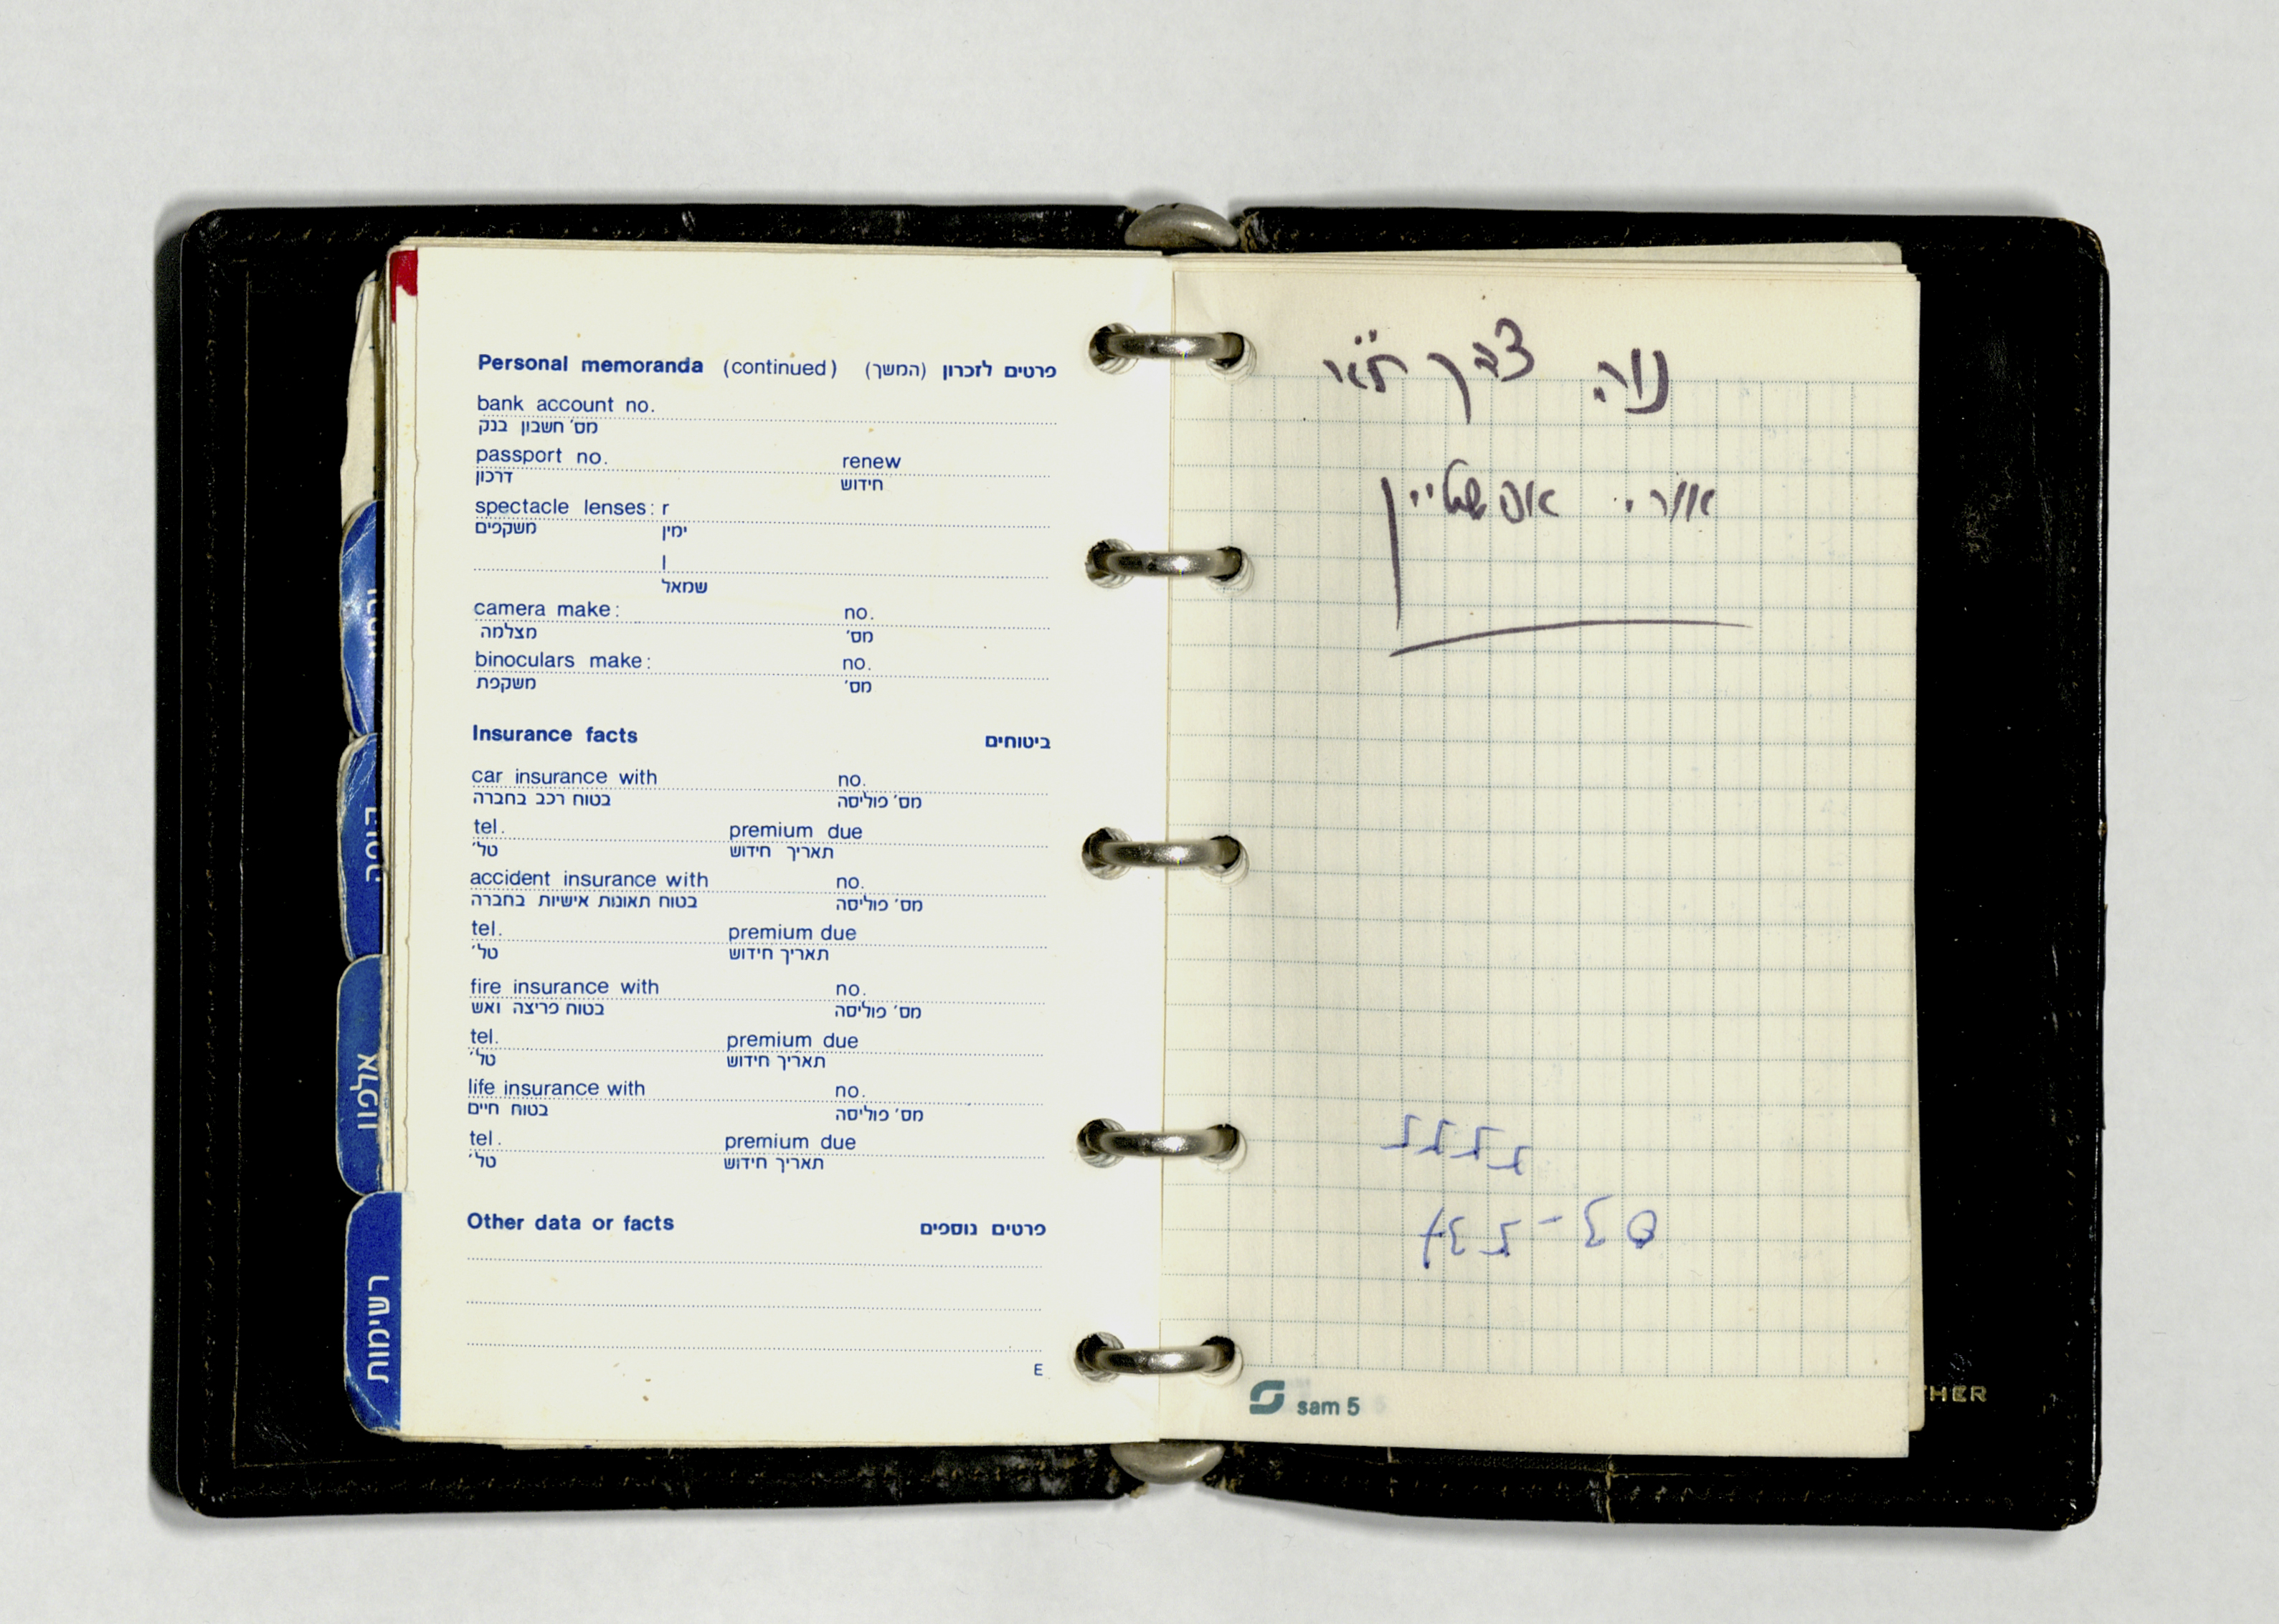 Personal memoranda (continued) פרטים לזכרון (המשך)
bank account no.
מס׳ חשבון בנק
passport no. renew
דרכון חידוש
spectacle lenses: r
משקפים ימין
l
שמאל
camera make: no.
מצלמה מס׳
binoculars make: no.
משקפת מס׳
Insurance facts ביטוחים
car insurance with no.
בטוח רכב בחברה מס׳ פוליסה
tel. premium due
טל׳ תאריך חידוש
accident insurance with no.
בטוח תאונות אישיות בחברה מס׳ פוליסה
tel. premium due
טל׳ תאריך חידוש
fire insurance with no.
בטוח פריצה ואש מס׳ פוליסה
tel. premium due
טל׳ תאריך חידוש
life insurance with no.
בטוח חיים מס׳ פוליסה
tel. premium due
טל׳ תאריך חידוש
Other data or facts פרטים נוספים
E
אלפון
רשימות
נוה צדק ת"א
אורי אפשטיין
sam 5